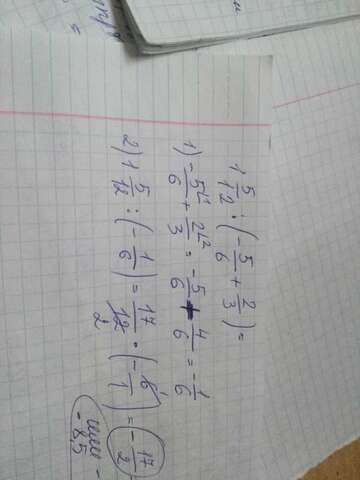 1 5/12 : (-5/6 + 2/3) =
1) -5/6 + 2/3 = -5/6 + 4/6 = -1/6
2) 1 5/12 : (-1/6) = 17/12 · (-6/1) = -17/2
или -8,5